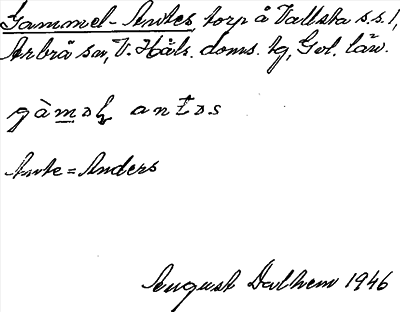 Gammel-Antes torp å Vallsta s.s. 1,
Arbrå sn, V. Häls. doms. tg, Gvl. län.
gàməl antəs
Ante = Anders
August Dalhem 1946